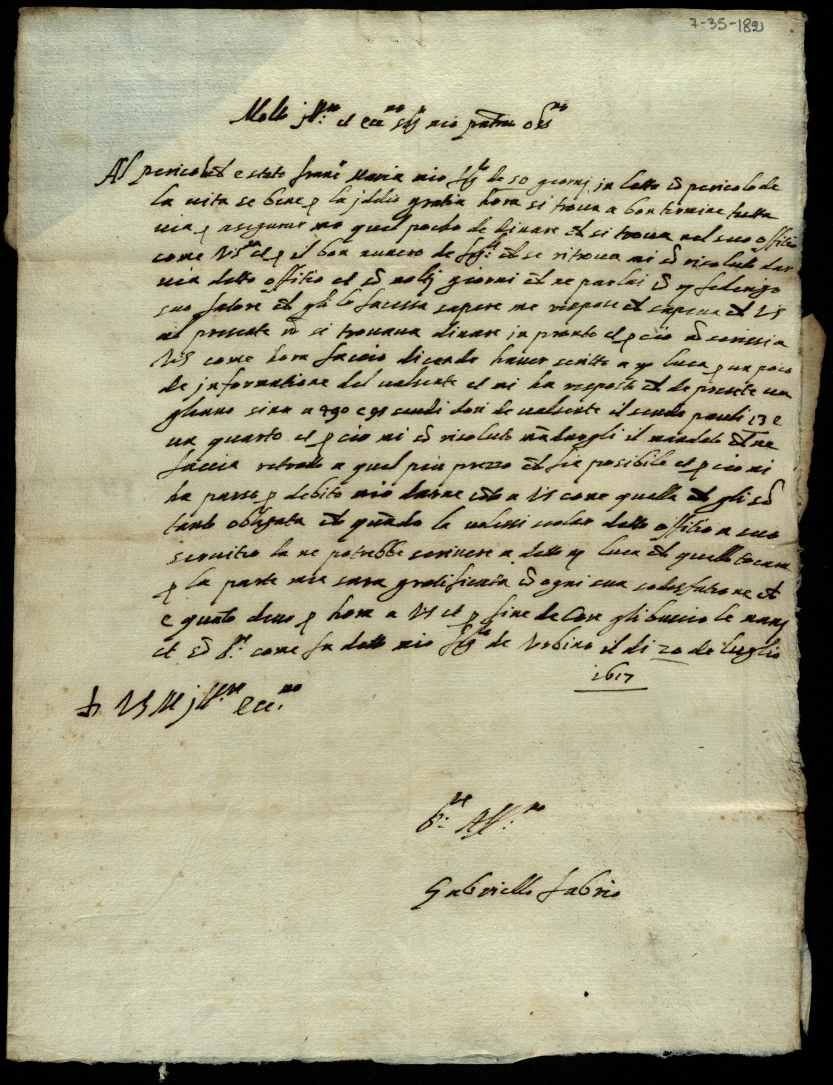 7-35-182
Molto jll.re et ecc.mo sig.r mio patron oss.mo
Al pericolo ch è stato franc.o Maria mio fig.lo de 50 giorni in letto cō pericolo de
la vita se bene p la jddio gratia hora si trova a bon termine tutta
via p asegurar mo quel pocho de dinare ch si trova nel suo offitio
come VS et p il bon numero de fig.li ch se ritrova mi cō risoluto dar
via detto offitio et molti giorni ch ne parlai cō m federigo
suo fatore ch gli lo facessa sapere me respose ch sapeva ch VS
al presente nō si trovava dinare in pronto et p ciò scrissia
VS come hora faccio dicendo haver scritto a m luca p un poco
de informatione del valsente et mi ha resposto ch de presete va
gliano sina a 90 e 91 scudi dori de valsente il scudo pauli 13 e
un quarto et p ciò mi risoluto mādargli il mandato ch ne
faccia retratto a quel piu prezzo ch sia posibile et p ciò mi
ha parso p debito mio darne cōto a VS come quella ch gli sō
tanto obligata ch quādo la volessi detto offitio a suo
servitio la ne potrebbe scrivere a detto m luca ch quello tocara
p la parte mia sara gratificata cō ogni sua sodisfatione ch
e quanto devo p hora a VS et p fine de core gli buccio le mani
et cō come fa detto mio fig.lo de Urbino il di 20 de luglio
1617
D VS M jll.re ecc.mo
S.re Aff.mo
Gabriello fabrio